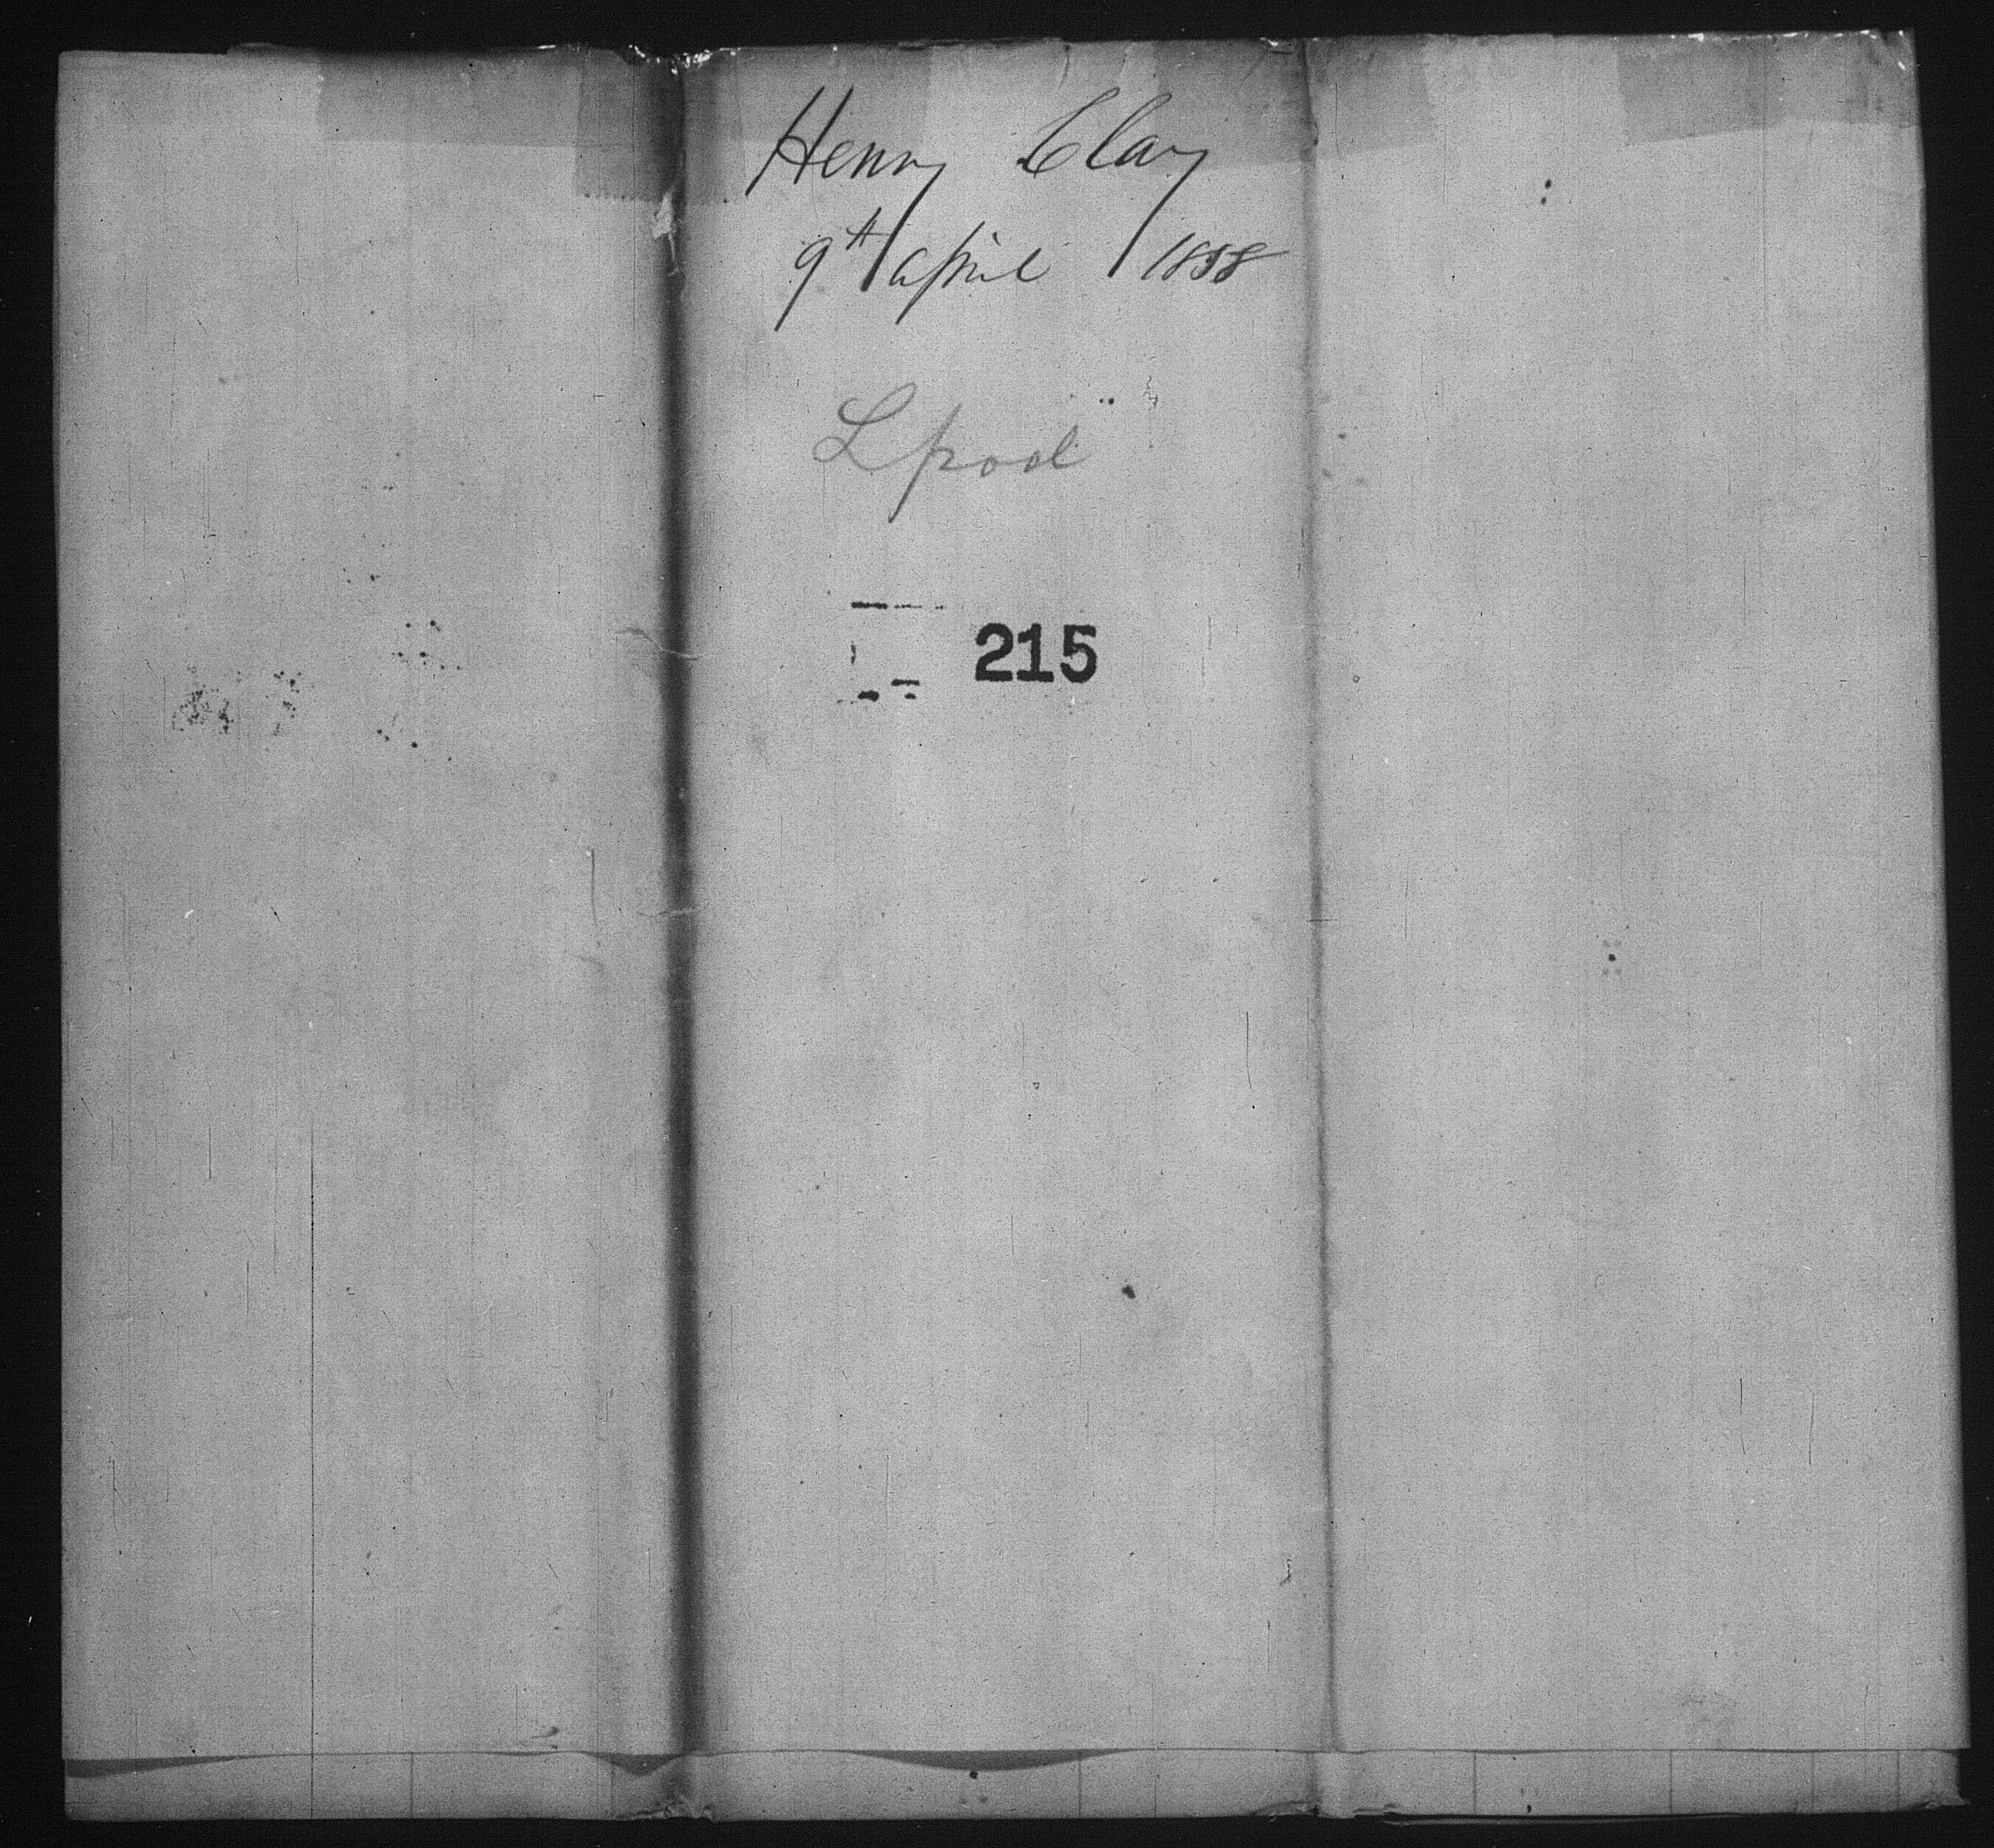 Henry Clay
9th april 1858
Lpool
215